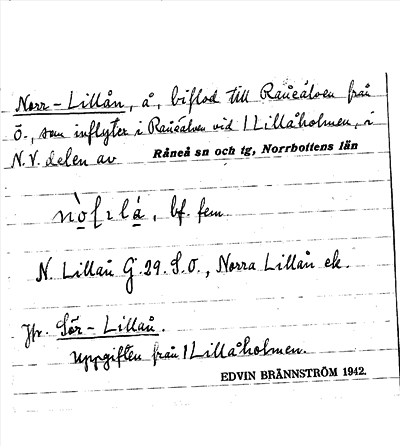 Norr-Lillån, å, biflod till Råneälven från
ö., som inflyter i Råneälven vid 1 Lillåholmen, i
N.V. delen av Råneå sn och tg, Norrbottens län
bf. fem.
N. Lillån G. 29. S.O., Norra Lillån ek.
Jfr. Sör-Lillån.
Uppgiften från 1 Lillåholmen.
EDVIN BRÄNNSTRÖM 1942.